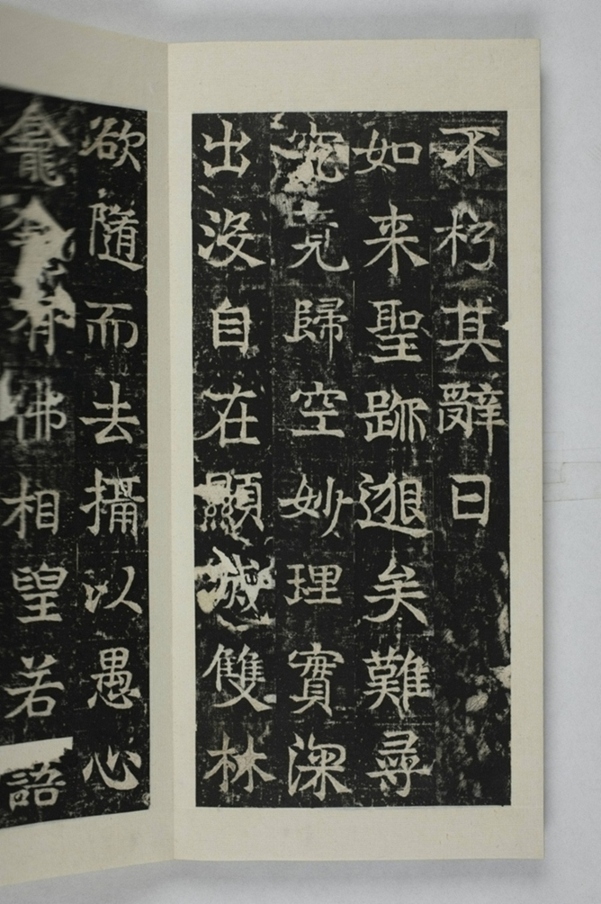 不朽其辭曰
如来聖跡遐矣難尋
究竟歸空妙理實深
出沒自在顯滅雙林
欲隨而去攝以愚心
龕龕有佛相望若語